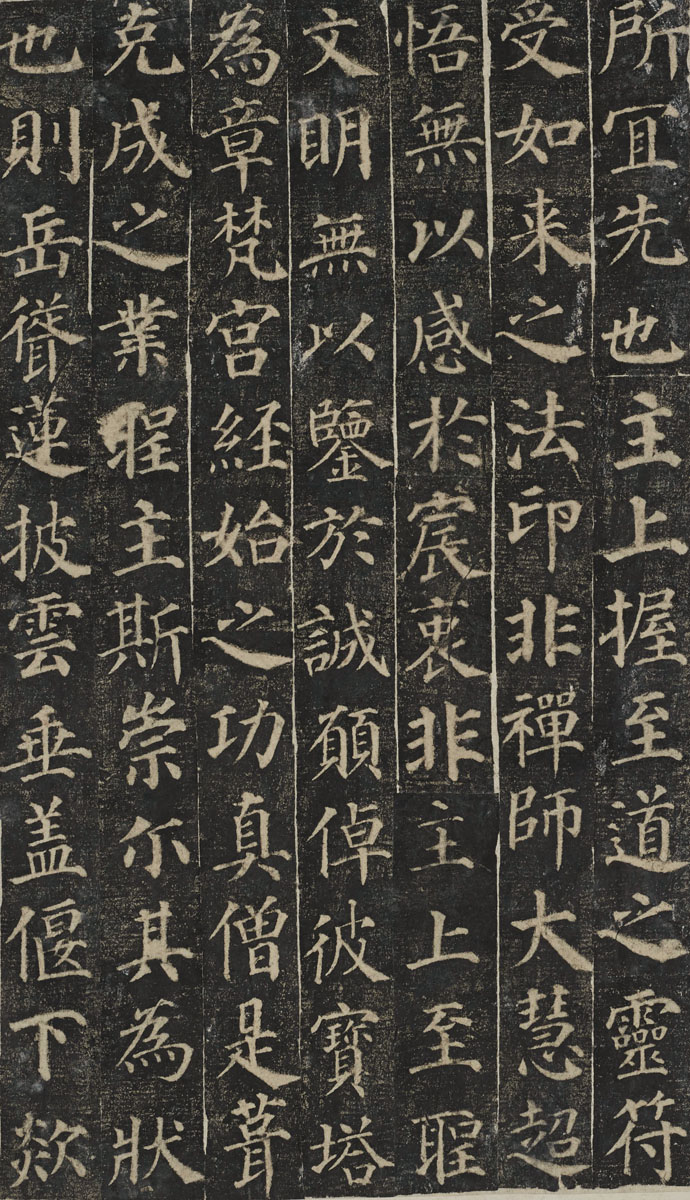 所宜先也主上握至道之靈符
受如来之法印非禪師大慧超
悟無以感於宸衷非主上至聖
文明無以鑒於誠願倬彼寶塔
為章梵宫經始之功真僧是葺
克成之業聖主斯崇尒其為狀
也則岳聳蓮披雲垂盖偃下欻